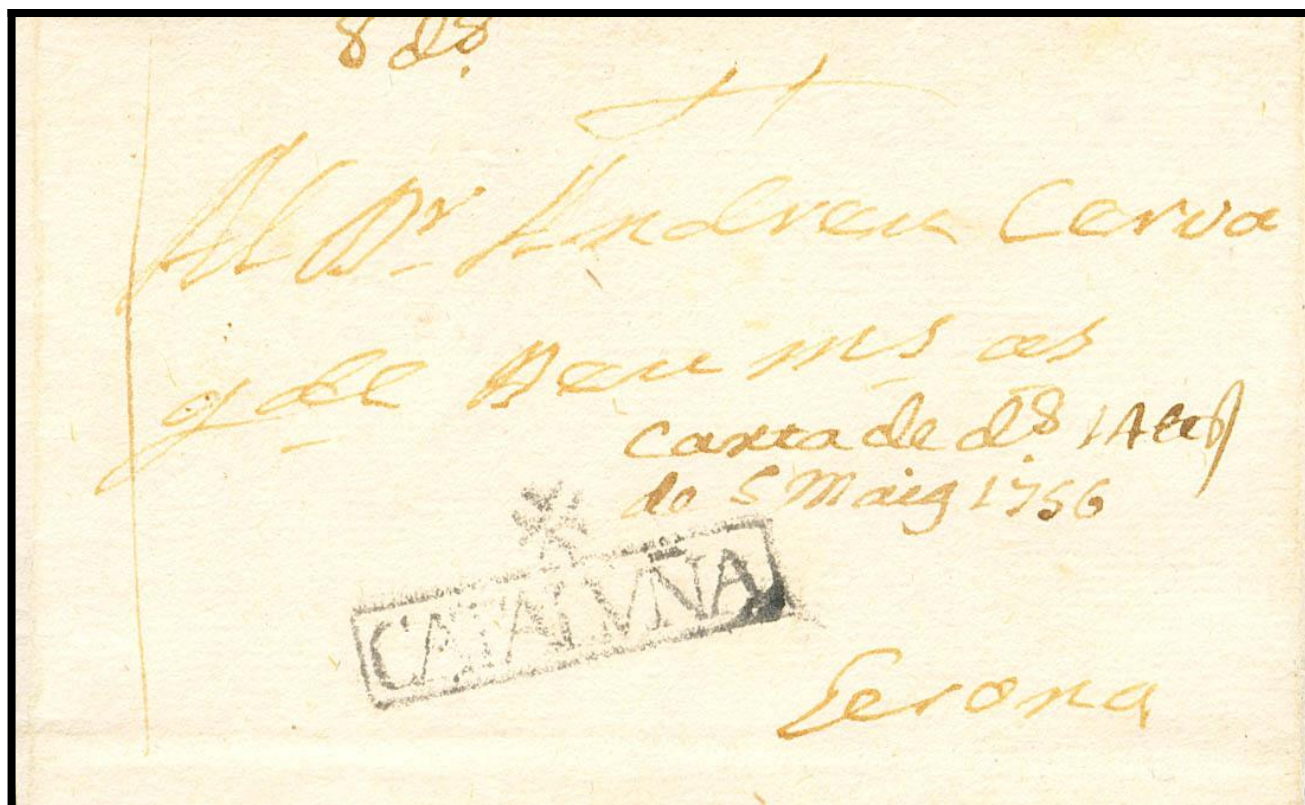 8 ds.
Al Dr. Andreu Cerva
q del Deu ms as
Carta de ds
de 5 Maig 1756
CATALVÑA
Gerona